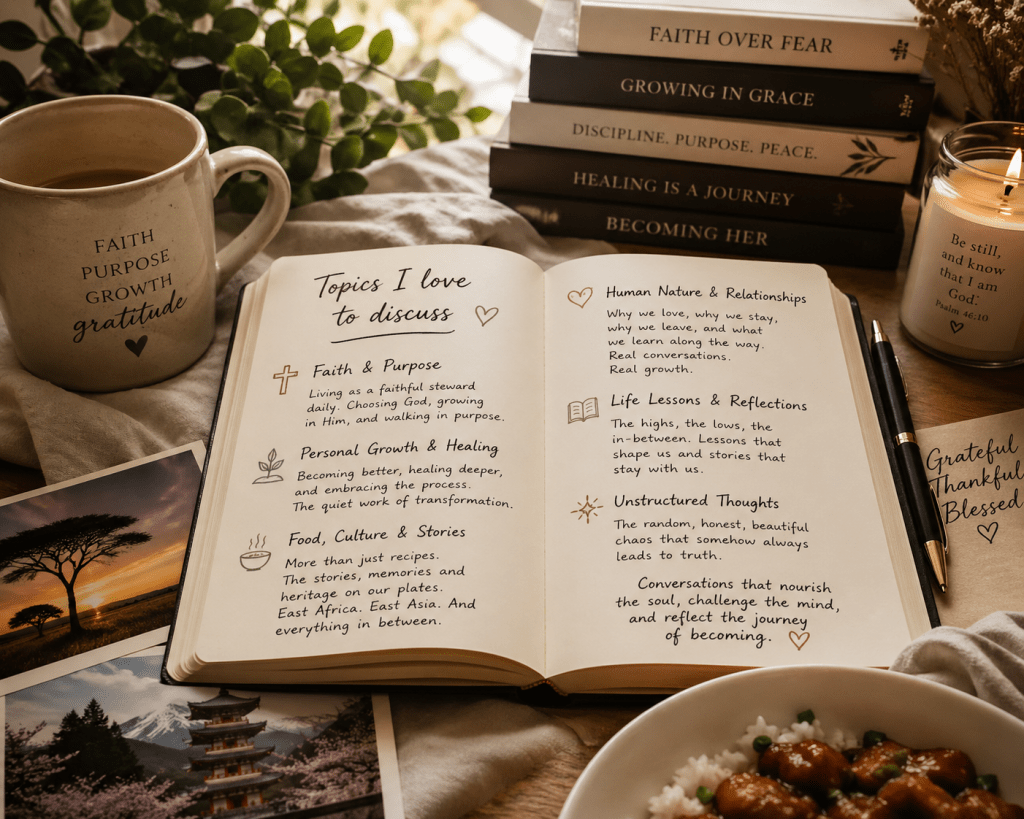 FAITH
PURPOSE
GROWTH
gratitude
FAITH OVER FEAR
GROWING IN GRACE
DISCIPLINE. PURPOSE. PEACE.
HEALING IS A JOURNEY
BECOMING HER
Be still,
and know
that I am
God.
Psalm 46:10
Topics I love
to discuss
Faith & Purpose
Living as a faithful steward
daily. Choosing God, growing
in Him, and walking in purpose.
Personal Growth & Healing
Becoming better, healing deeper,
and embracing the process.
The quiet work of transformation.
Food, Culture & Stories
More than just recipes.
The stories, memories and
heritage on our plates.
East Africa. East Asia. And
everything in between.
Human Nature & Relationships
Why we love, why we stay,
why we leave, and what
we learn along the way.
Real conversations.
Real growth.
Life Lessons & Reflections
The highs, the lows, the
in-between. Lessons that
shape us and stories that
stay with us.
Unstructured Thoughts
The random, honest, beautiful
chaos that somehow always
leads to truth.
Conversations that nourish
the soul, challenge the mind,
and reflect the journey
of becoming.
Grateful
Thankful
Blessed